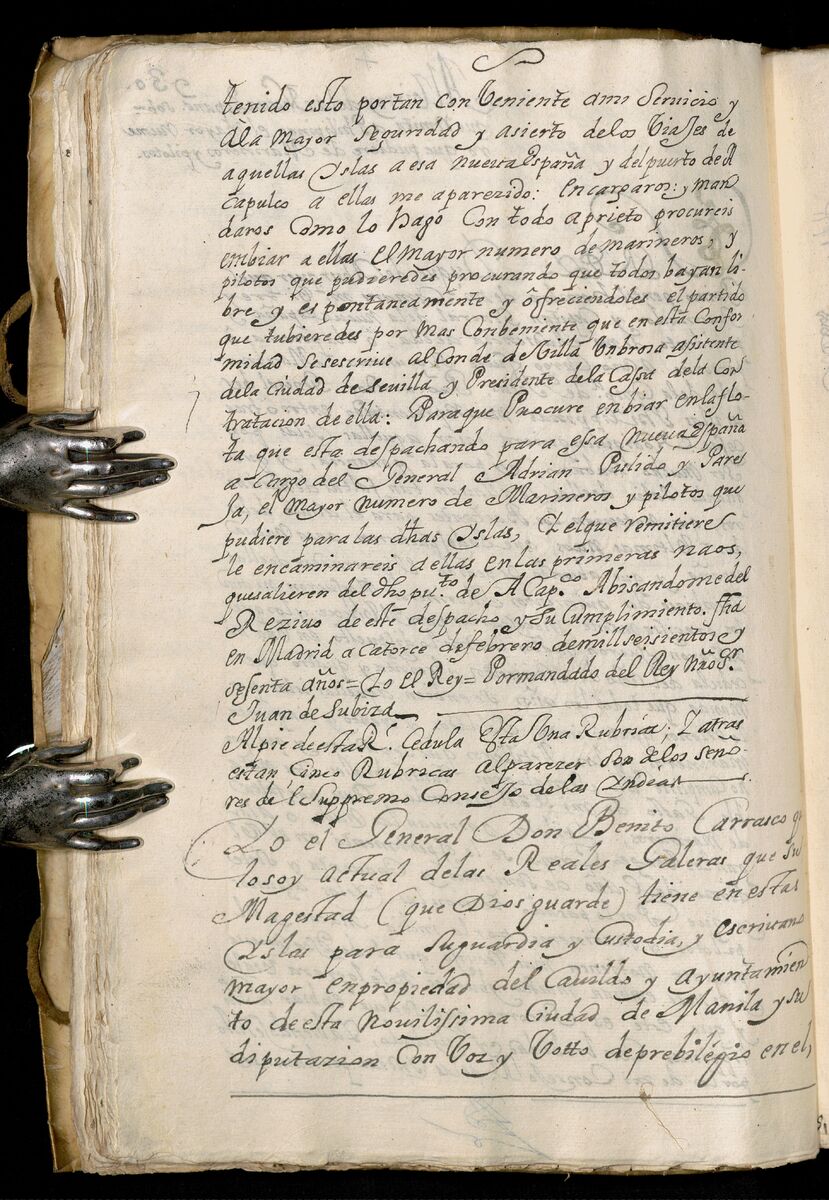 tenido esto portan conVeniente ami Servicio y
ala Mayor Seguridad y asierto delos Viajes de
aquellas Yslas a esa nueva España y del puerto de A
capulco a ellas me aparezido: Encargaros: y man
daros Como lo hago Con todo aprieto procureis
embiar a ellas El Mayor numero de marineros, y
pilotos que pudieredes procurando que todos bayan li-
bre y espontaneamente y ofreciendoles el partido
que tubieredes por Mas Conbeniente que en esta Confor
midad Se escrive al Conde de Villa Vmbrosa asistente
dela Ciudad de Sevilla y Presidente dela Cassa dela Con
tratacion de ella: Paraque Procure enbiar enla flo-
ta que esta despachando para essa nueva España
a Cargo del General Adrian Pulido y Pare
Ja, el Mayor numero de Marineros y pilotos que
pudiere para las dhas Yslas, Y el que remitiere
le encaminareis a ellas en las primeras naos,
que salieren del dho pu.to de ACap.co Abisandome del
Rezivo de este despacho y su Cumplimiento. ffha
en Madrid a catorce de febrero de mill seisientos y
sesenta años = Yo El Rey = Por mandado del Rey Nro S.r
Juan de Subiza
Al pie de esta R.l Cedula Esta Vna Rubrica; Y atras
estan Cinco Rubricas al parezer Son de los Seño-
res del Suppremo Consejo de las Yndias
Yo el General Don Benito Carrasco q
lo soy actual delas Reales Galeras que Su
Magestad (que Dios guarde) tiene en estas
Yslas para Suguardia y Custodia, y escrivano
mayor enpropiedad del Cavildo y Ayuntamien
to de esta Novilissima Ciudad de Manila y su
diputazion Con Voz y Votto de prebilegio en el,